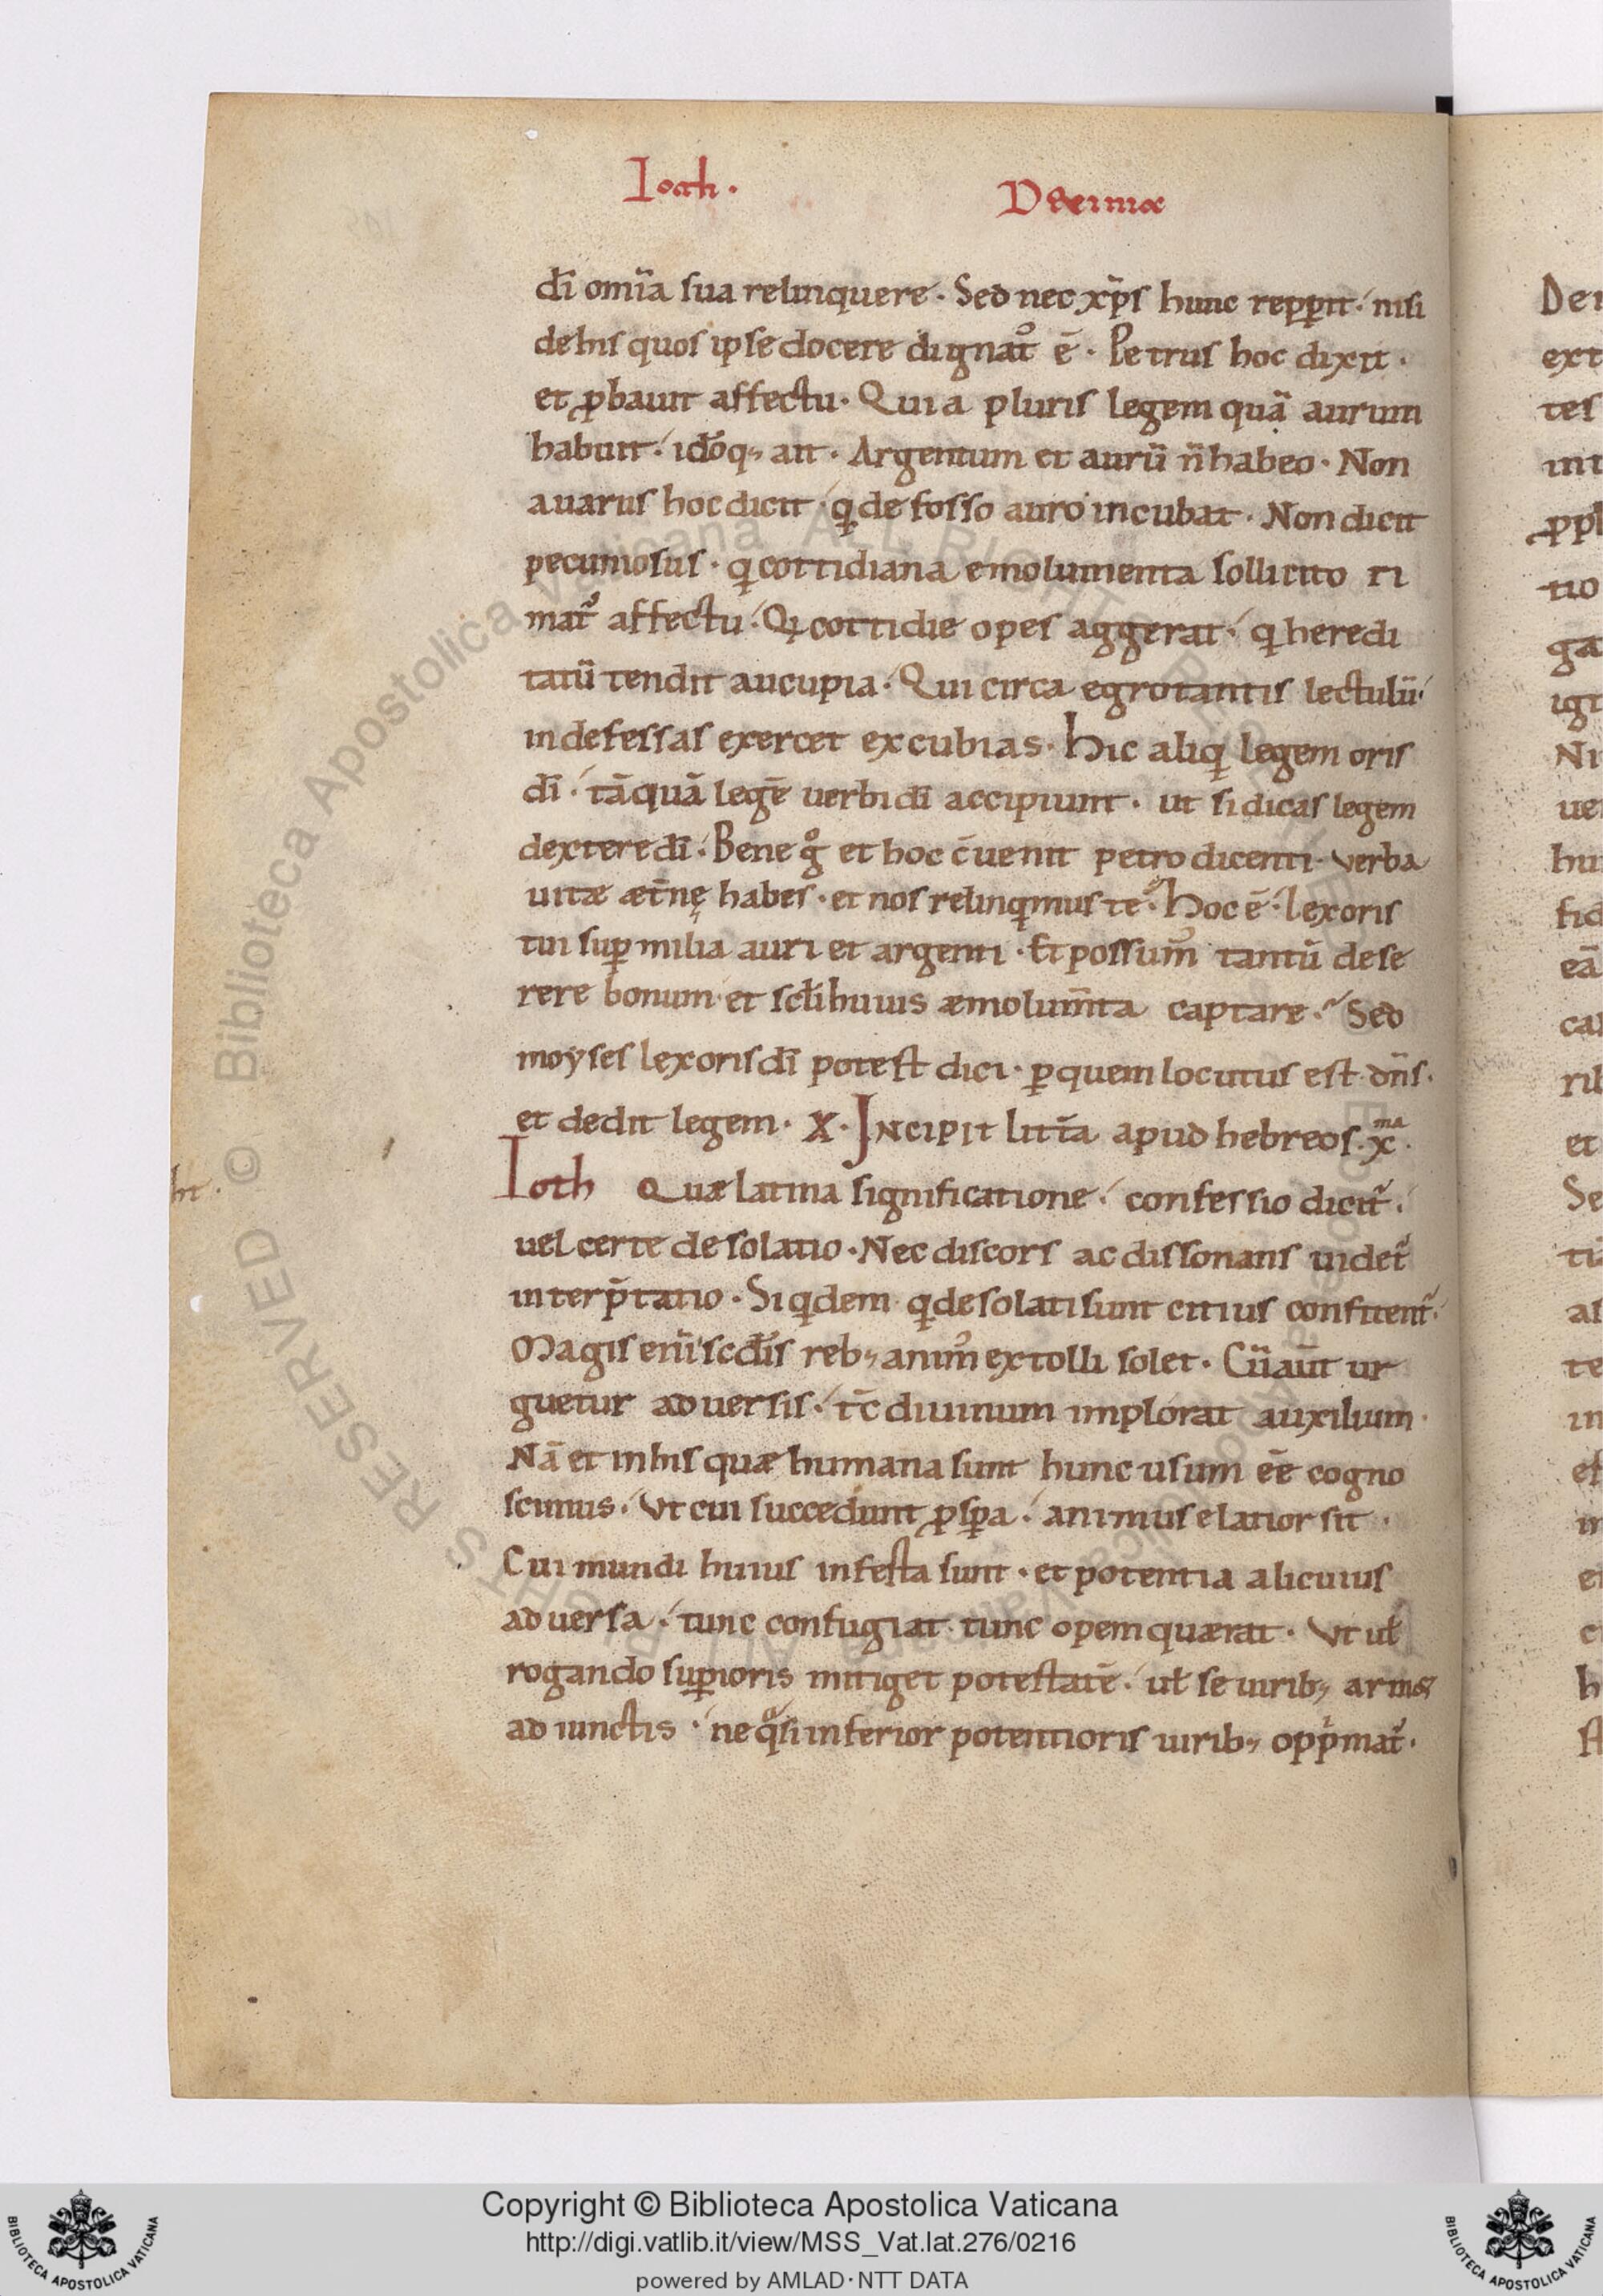 Ioth. Decima
dī omīa sua relinquere. Sed nec xp̄s hunc repperit. nisi
de his quos ipse docere dignat᷒ ē. Petrus hoc dixit.
et ꝓbauit affectu. Quia pluris legem quā aurum
habuit. idōq; ait. Argentum et aurū n̄ habeo. Non
auarus hoc dicit. q̇ defosso auro incubat. Non dicit
pecuniosus. q̇ cottidiana emolumenta sollicito ri
mat᷒ affectu. Q̇ cottidie opes aggerat. q̇ heredi
tatū tendit aucupia. Qui circa egrotantis lectulū.
indefessas exercet excubias. Hic aliq̇ legem oris
dī. tāquā legē uerbi dī accipiunt. ut si dicas legem
dextere dī. Bene gͦ et hoc c̄uenit petro dicenti. Verba
uitæ æt̄nę habes. et nos relinqͥmus te. Hoc ē. Lex oris
tui suꝑ milia auri et argenti. Et possum᷒ tantū dese
rere bonum et scl̄i huius æmolum̄ta captare. Sed
moyses lex oris dī potest dici. ꝑ quem locutus est dn̄s.
et dedit legem. X. Incipit litt̄a apud hebreos. xͫᵃ.
Ioth Quæ latina significatione. confessio dicit᷒.
uel certe desolatio. Nec discors ac dissonans uidet᷒
interp̄tatio. Siq̇dem q̇ desolati sunt citius confitent᷒.
Magis eni᷒ scd̄is reb; anim᷒ extolli solet. Cū aut̄ ur
guetur aduersis. tc̄ diuinum implorat auxilium.
Nā et in his quæ humana sunt hunc usum eē cogno
scimus. Vt cui succedunt ꝓsꝑa. animus elatior sit.
Cui mundi huius infesta sunt. et potentia alicuius
aduersa. tunc confugiat tunc opem quærat. Vt ul̄
rogando suꝑioris mitiget potestatē. ul̄ se uirib; armis
adiunctis. ne qͣsi inferior potentioris uirib; oppͥmat᷒.
Copyright © Biblioteca Apostolica Vaticana
http://digi.vatlib.it/view/MSS_Vat.lat.276/0216
powered by AMLAD·NTT DATA